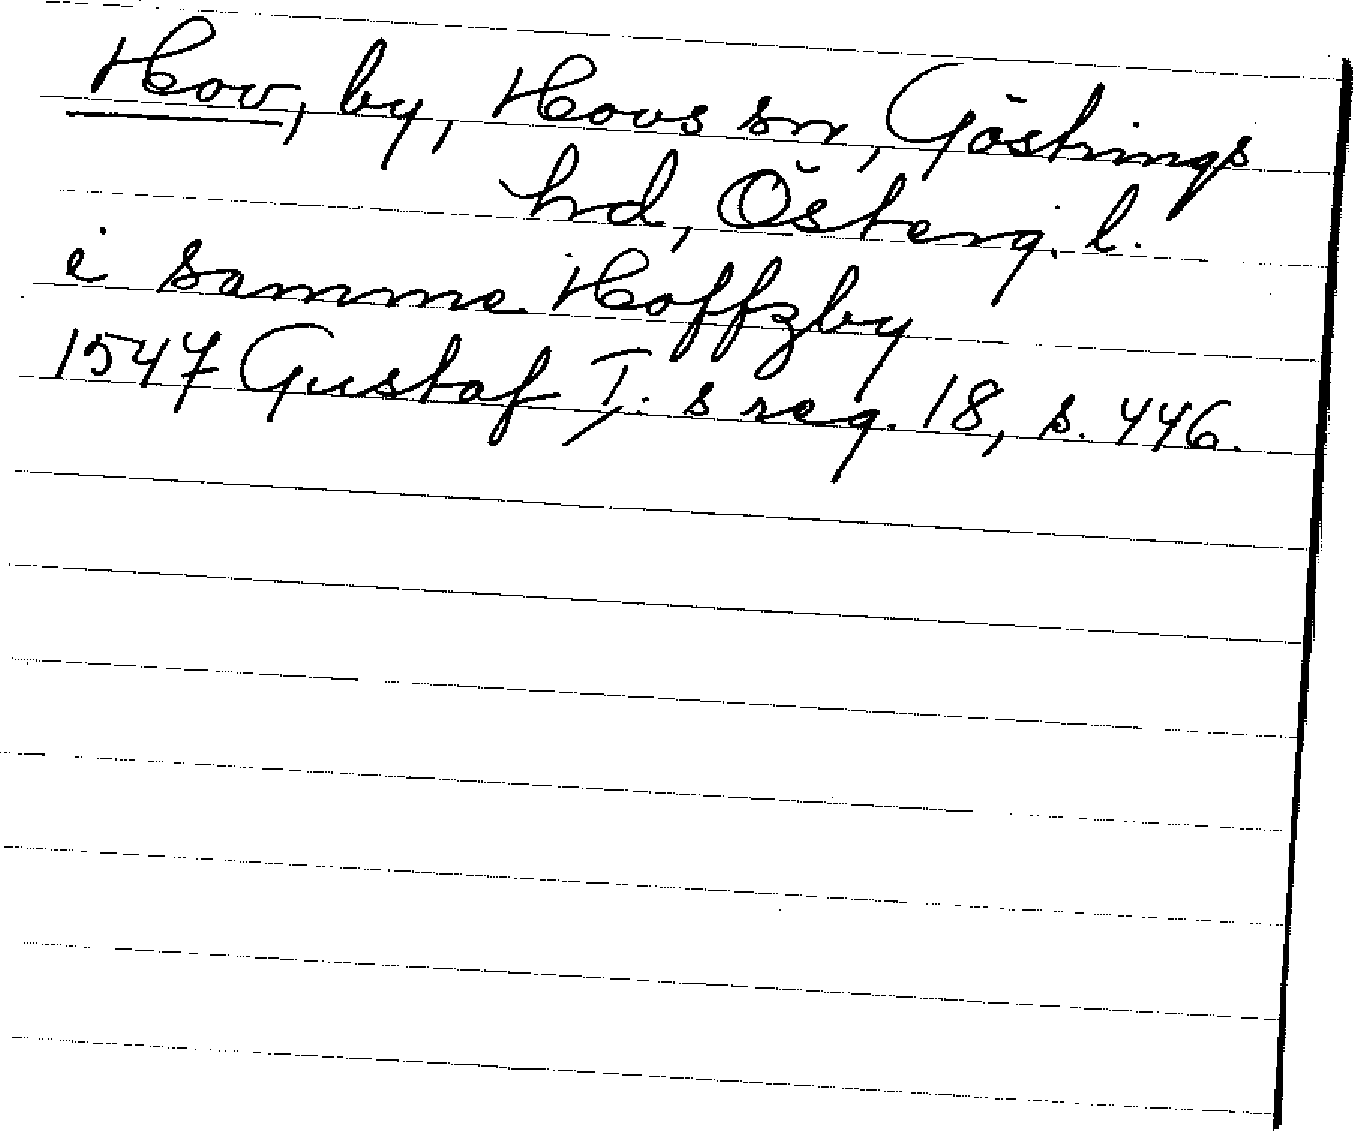 Hov, by, Hovs sn, Göstrings
hd, Österg. l.
i samme Hoffzby
1547 Gustaf I. s reg. 18, s. 446.